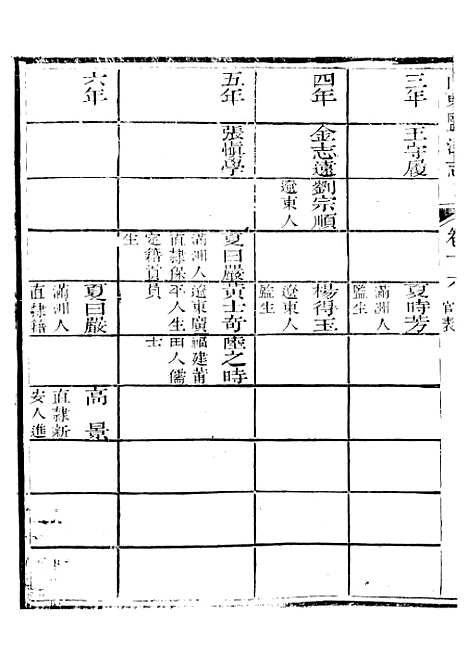 東鹽法志
卷十六 官表
三年
王守履
夏時芳
滿洲人
監生
四年
金志遠
劉宗順
遼東人
楊得玉
遼東人
監生
五年
張愼學
夏曰嚴
滿洲人
直隸保
定籍貢
生
黃士奇
遼東廣
平人生
員
之時
福建莆
田人儒
士
六年
夏曰嚴
滿洲人
直隸籍
高景
直隸新
安人進